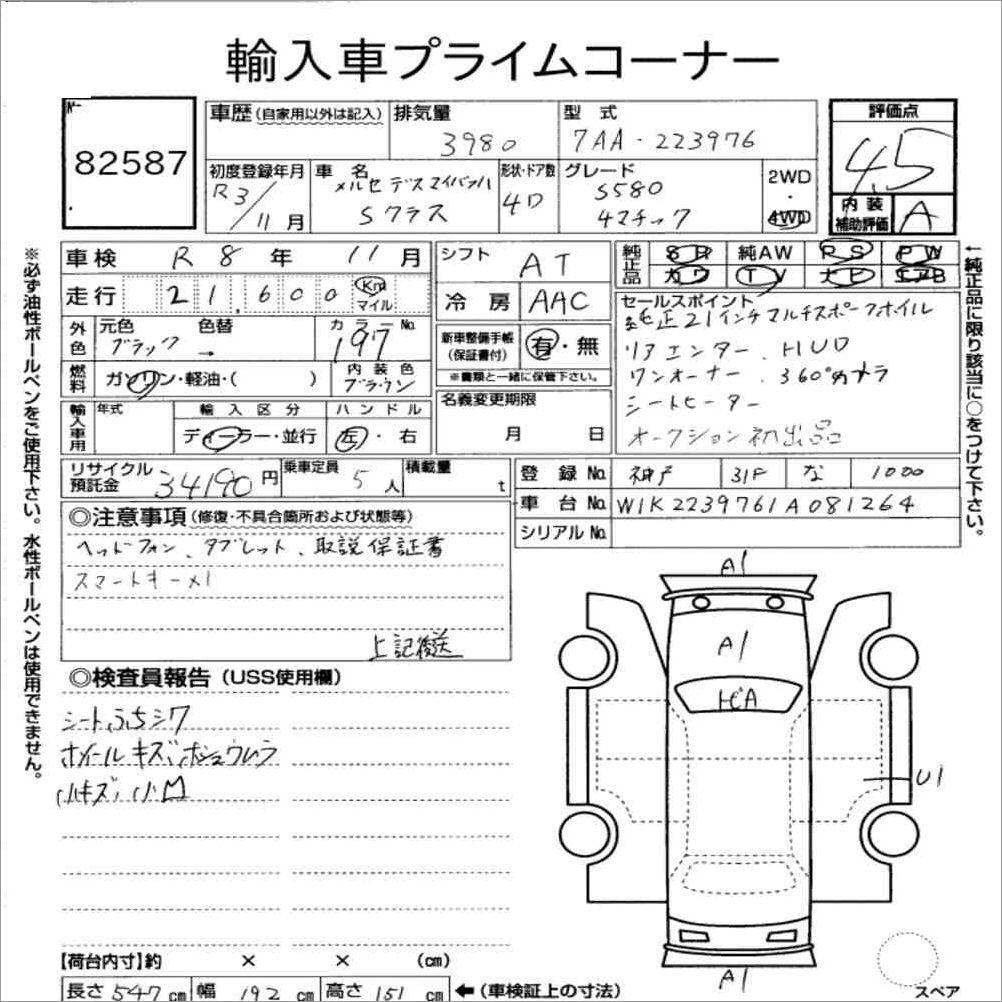 輸入車プライムコーナー
No.
82587
車歴 (自家用以外は記入)
排気量
3980
型式
7AA-223976
評価点
4.5
初度登録年月
R3/11月
車名
メルセデスマイバッハ
Sクラス
形状・ドア数
4D
グレード
S580
4マチック
2WD
・
4WD
内装
補助評価
A
車検 R8年 11月
シフト
AT
純正品
SR 純AW PS PW
カワ TV ナビ エアB
走行 21,600 Km マイル
冷房 AAC
セールスポイント
純正21インチマルチスポークホイル
リアエンター、HUD
ワンオーナー、360°カメラ
シートヒーター
オークション初出品
外色
元色
ブラック
色替
→
カラーNo.
197
新車整備手帳
(保証書付)
有・無
※書類と一緒に保管下さい。
燃料
ガソリン・軽油・( )
内装色
ブラウン
名義変更期限
月 日
輸入車用
年式
輸入区分
ディーラー・並行
ハンドル
左・右
リサイクル
預託金
34190円
乗車定員
5人
積載量
t
登録No. 神戸 31F な 1000
車台No. W1K2239761A081264
シリアルNo.
◎注意事項 (修復・不具合箇所および状態等)
ヘッドフォン、タブレット、取説保証書
スマートキー×1
上記後送
◎検査員報告 (USS使用欄)
シートふちシワ
ホイールキズ、ホシュウムラ
小キズ、小凹
A1
A1
トビA
U1
A1
スペア
【荷台内寸】約 × × (cm)
長さ 547 cm 幅 192 cm 高さ 151 cm ←(車検証上の寸法)
※必ず油性ボールペンをご使用下さい。水性ボールペンは使用できません。
←純正品に限り該当に○をつけて下さい。